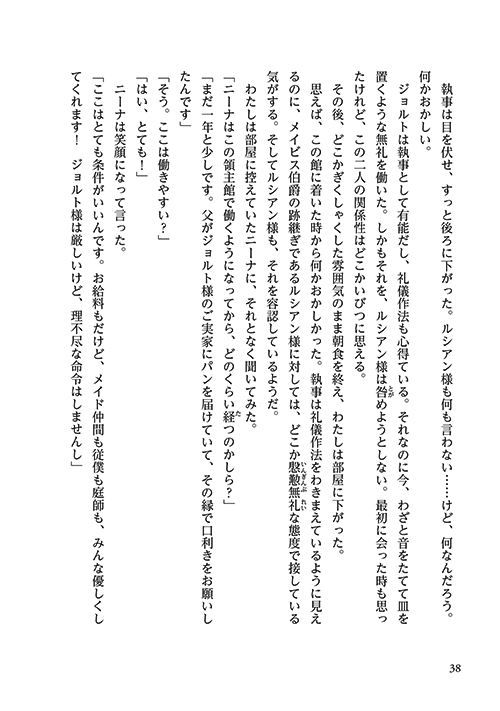 執事は目を伏せ、すっと後ろに下がった。ルシアン様も何も言わない……けど、何なんだろう。
何かおかしい。
　ジョルトは執事として有能だし、礼儀作法も心得ている。それなのに今、わざと音をたてて皿を
置くような無礼を働いた。しかもそれを、ルシアン様は咎めようとしない。最初に会った時も思っ
たけれど、この二人の関係性はどこかいびつに思える。
　その後、どこかぎくしゃくした雰囲気のまま朝食を終え、わたしは部屋に下がった。
　思えば、この館に着いた時から何かおかしかった。執事は礼儀作法をわきまえているように見え
るのに、メイビス伯爵の跡継ぎであるルシアン様に対しては、どこか慇懃無礼な態度で接している
気がする。そしてルシアン様も、それを容認しているようだ。
　わたしは部屋に控えていたニーナに、それとなく聞いてみた。
「ニーナはこの領主館で働くようになってから、どのくらい経つのかしら？」
「まだ一年と少しです。父がジョルト様のご実家にパンを届けていて、その縁で口利きをお願いし
たんです」
「そう。ここは働きやすい？」
「はい、とても！」
　ニーナは笑顔になって言った。
「ここはとても条件がいいんです。お給料もだけど、メイド仲間も従僕も庭師も、みんな優しくし
てくれます！　ジョルト様は厳しいけど、理不尽な命令はしませんし」
38